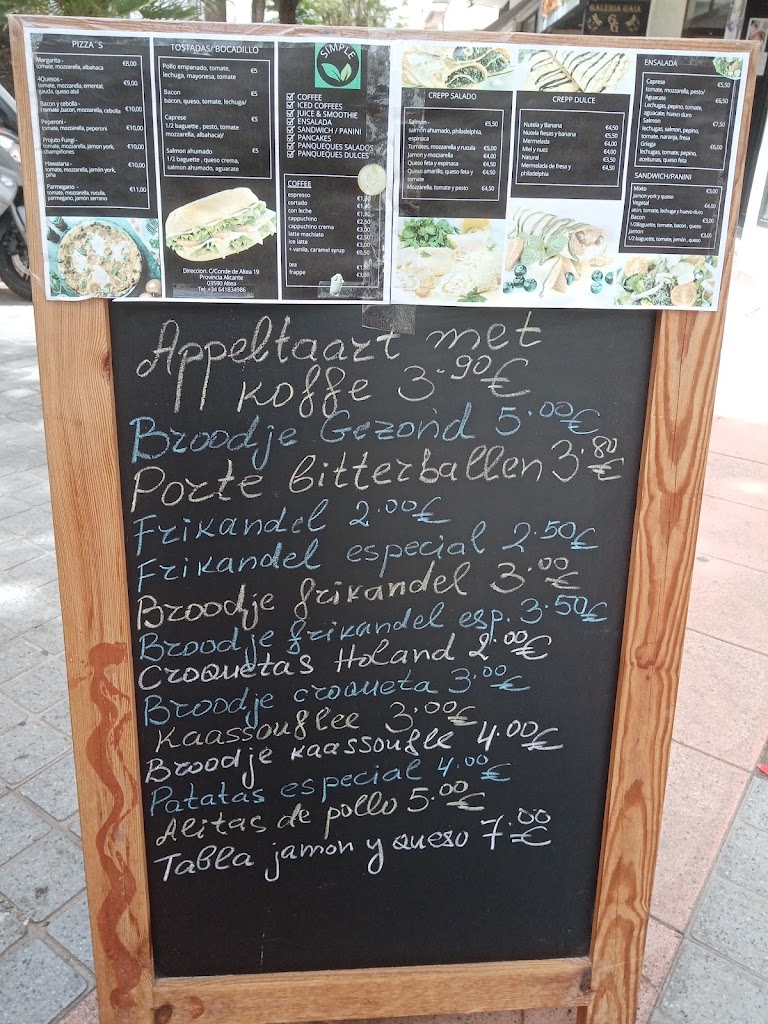 GALERIA GAIA
PIZZA´S
Margarita -
tomate, mozzarella, albahaca
€8,00
4Quesos -
tomate, mozzarella, emental,
gauda, queso atul
€9,00
Bacon y cebolla -
tomate, bacon, mozzarella, cebolla
€10,00
Peperoni -
tomate, mozzarella, peperoni
€10,00
Projuto Fungi -
tomate, mozzarella, jamon york,
champiñones
€10,00
Hawaiana -
tomate, mozzarella, jamón york,
piña
€10,00
Parmegano -
tomate, mozzarella, rucula,
parmegano, jamón serrano
€11,00
TOSTADAS/ BOCADILLO
Pollo empanado, tomate,
lechuga, mayonesa, tomate
€5
Bacon
bacon, queso, tomate, lechuga/
€5
Caprese
1/2 baguette , pesto, tomate
mozzarella, albahaca)/
€5
Salmon ahumado
1/2 baguette , queso crema,
salmon ahumado, aguacate
€5
Direccion. C/Conde de Altea 19
Provincia Alicante
03590 Altea
Tel: +34 641834986
SIMPLE
COFFEE
ICED COFFEES
JUICE & SMOOTHIE
ENSALADA
SANDWICH / PANINI
PANCAKES
PANQUEQUES SALADOS
PANQUEQUES DULCES
COFFEE
espresso
cortado
con leche
cappuchino
cappuchino crema
latte machiato
ice latte
+ vanilla, caramel syrup
tea
frappe
CREPP SALADO
Salmón -
salmón ahumado, philadelphia,
espinaca
€5,50
Tomates, mozzarella y rucula
€5,00
Jamon y mozzarella
€4,00
Queso feta y espinaca
€4,50
Queso amarillo, queso feta y
tomate
€4,50
Mozzarella, tomate y pesto
€4,50
CREPP DULCE
Nutela y Banana
€4,50
Nutella fresas y banana
€5,50
Mermelada
€4,00
Miel y nuez
€4,00
Natural
€3,50
Mermelada de fresa y
philadelphia
€4,50
ENSALADA
Caprese
tomate, mozzarella, pesto/
€5,50
Aguacate
Lechugas, pepino, tomate,
aguacate, huevo duro
€6,50
Salmon
lechugas, salmon, pepino,
tomate, naranja, fresa
€7,50
Griega
lechugas, tomate, pepino,
aceitunas, queso feta
€6,00
SANDWICH/PANINI
Mixto
jamon york y queso
€3,00
Vegetal
atún, tomate, lechuga y huevo duro
Bacon
1/2Baguette, tomate, bacon, queso
€3,00
Jamon
1/2 baguette, tomate, jamón , queso
€3,00
Appeltaart met
koffe 3.90€
Broodje Gezond 5.00€
Porte bitterballen 3.80€
Frikandel 2.00€
Frikandel especial 2.50€
Broodje frikandel 3.00€
Broodje frikandel esp. 3.50€
Croquetas Holand 2.00€
Broodje croqueta 3.00€
Kaassouflee 3.00€
Broodje kaassoufle 4.00€
Patatas especial 4.00€
Alitas de pollo 5.00€
Tabla jamon y queso 7.00€